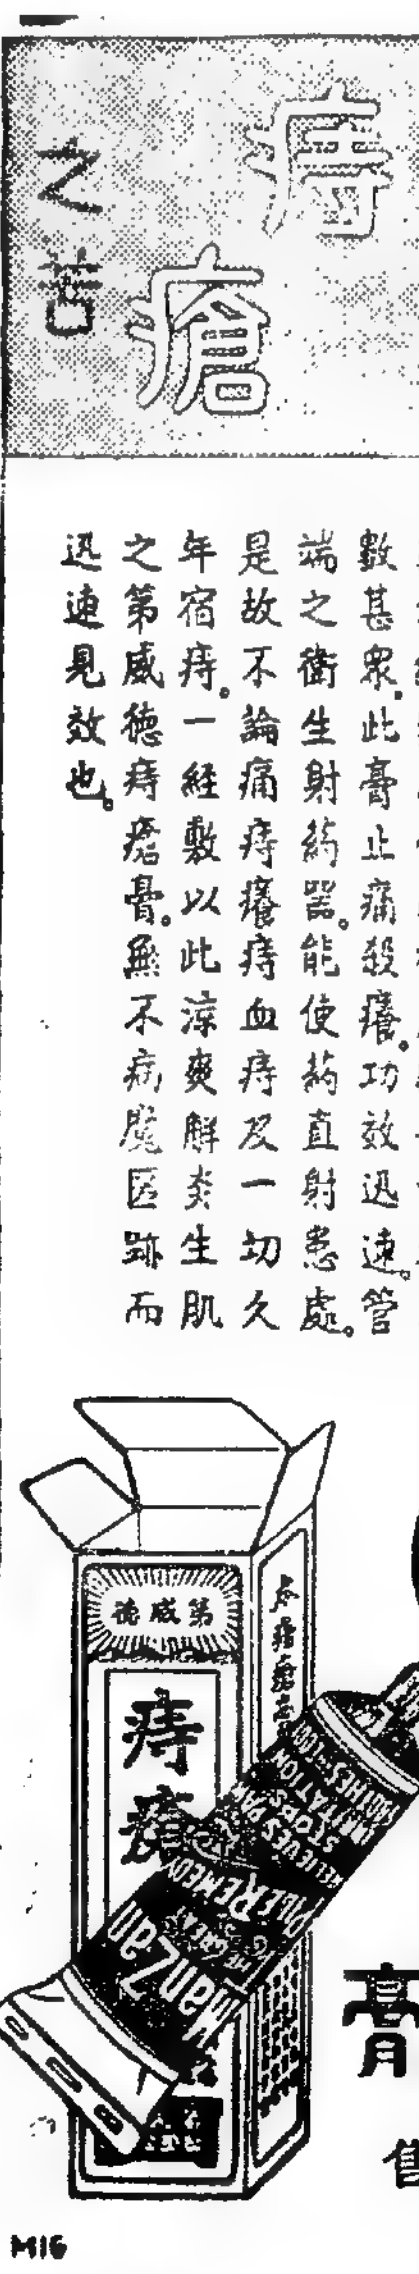 痔瘡
之苦
數甚衆。此膏止痛殺癢。功效迅速。管
端之衛生射葯器。能使葯直射患處。
是故不論痛痔癢痔血痔及一切久
年宿痔。一經敷以此涼爽解炎生肌
之第威德痔瘡膏。無不病魔匿跡而
迅速見效也。
第威德
痔瘡
ManZan
THE GREAT
PILE REMEDY
RELIEVES PAIN
STOPS
IRRITATION
膏
售
M16